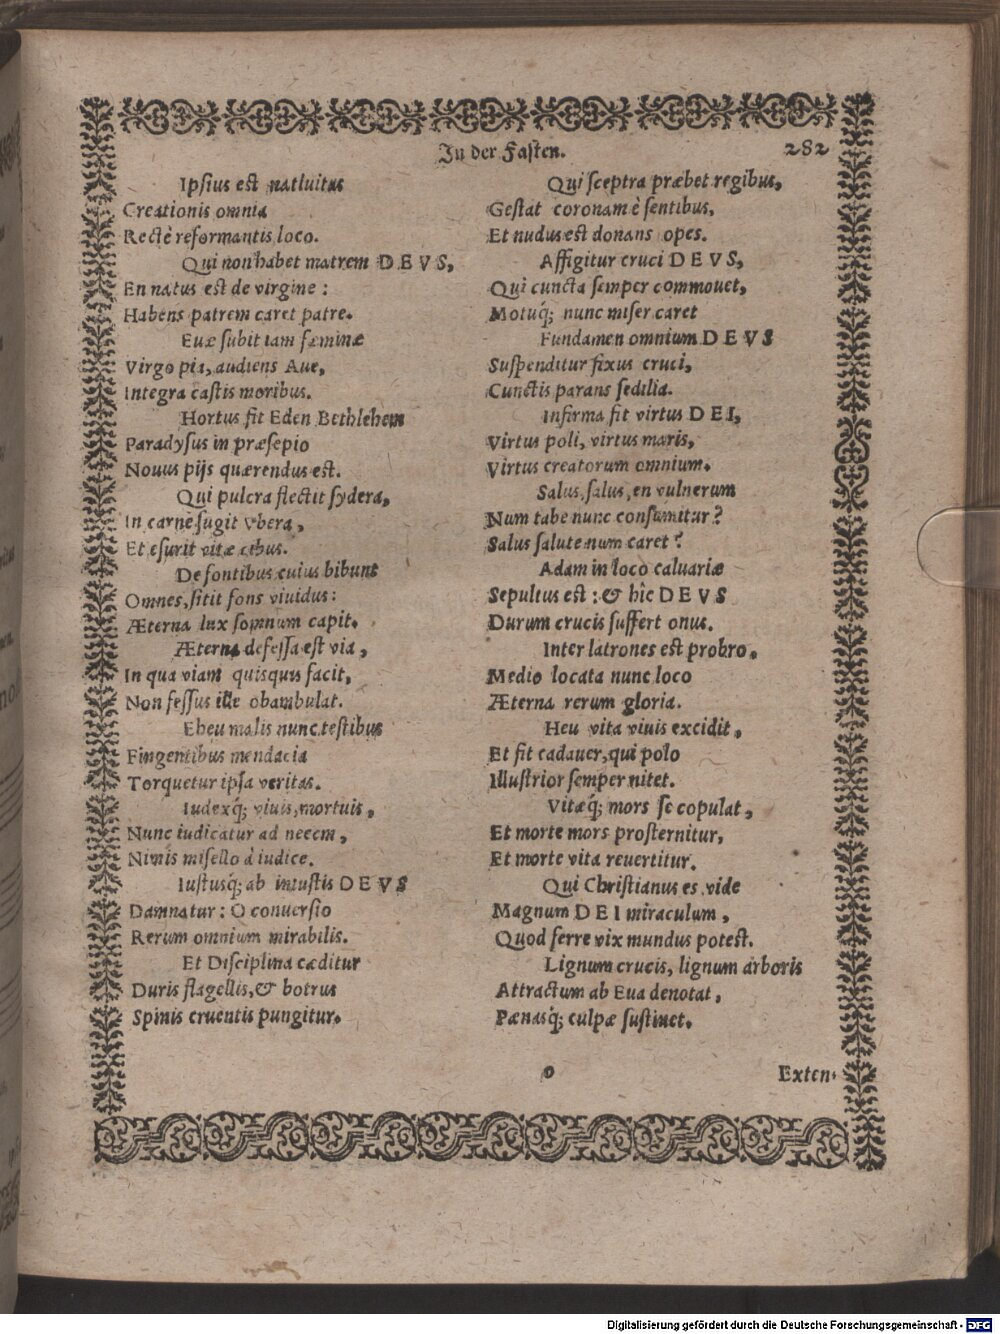 In der Fasten.
282
Ipsius est natiuitas
Creationis omnia
Rectè reformantis loco.
Qui non habet matrem DEVS,
En natus est de virgine :
Habens patrem caret patre.
Euæ subit iam fæminæ
Virgo pia, audiens Aue,
Integra castis moribus.
Hortus fit Eden Bethlehem
Paradysus in præsepio
Nouus pijs quærendus est.
Qui pulcra flectit sydera,
In carne sugit vbera,
Et esurit vitæ cibus.
De fontibus cuius bibunt
Omnes, sitit fons viuidus:
Æterna lux somnum capit.
Æterna defessa est via,
In qua viam quisquis facit,
Non fessus ille obambulat.
Eheu malis nunc testibus
Fingentibus mendacia
Torquetur ipsa veritas.
Iudexq; viuis, mortuis,
Nunc iudicatur ad necem,
Nimis misello à iudice.
Iustusq; ab iniustis DEVS
Damnatur: O conuersio
Rerum omnium mirabilis.
Et Disciplina cæditur
Duris flagellis, & botrus
Spinis cruentis pungitur.
Qui sceptra præbet regibus,
Gestat coronam è sentibus,
Et nudus est donans opes.
Affigitur cruci DEVS,
Qui cuncta semper commouet,
Motuq́; nunc miser caret
Fundamen omnium DEVS
Suspenditur fixus cruci,
Cunctis parans sedilia.
Infirma fit virtus DEI,
Virtus poli, virtus maris,
Virtus creatorum omnium.
Salus, salus, en vulnerum
Num tabe nunc consumitur?
Salus salute num caret?
Adam in loco caluariæ
Sepultus est: & hîc DEVS
Durum crucis suffert onus.
Inter latrones est probro,
Medio locata nunc loco
Æterna rerum gloria.
Heu vita viuis excidit,
Et fit cadauer, qui polo
Illustrior semper nitet.
Vitæq́; mors se copulat,
Et morte mors prosternitur,
Et morte vita reuertitur.
Qui Christianus es, vide
Magnum DEI miraculum,
Quod ferre vix mundus potest.
Lignum crucis, lignum arboris
Attractum ab Eua denotat,
Pænasq́; culpæ sustinet.
o
Exten-
Digitalisierung gefördert durch die Deutsche Forschungsgemeinschaft - DFG